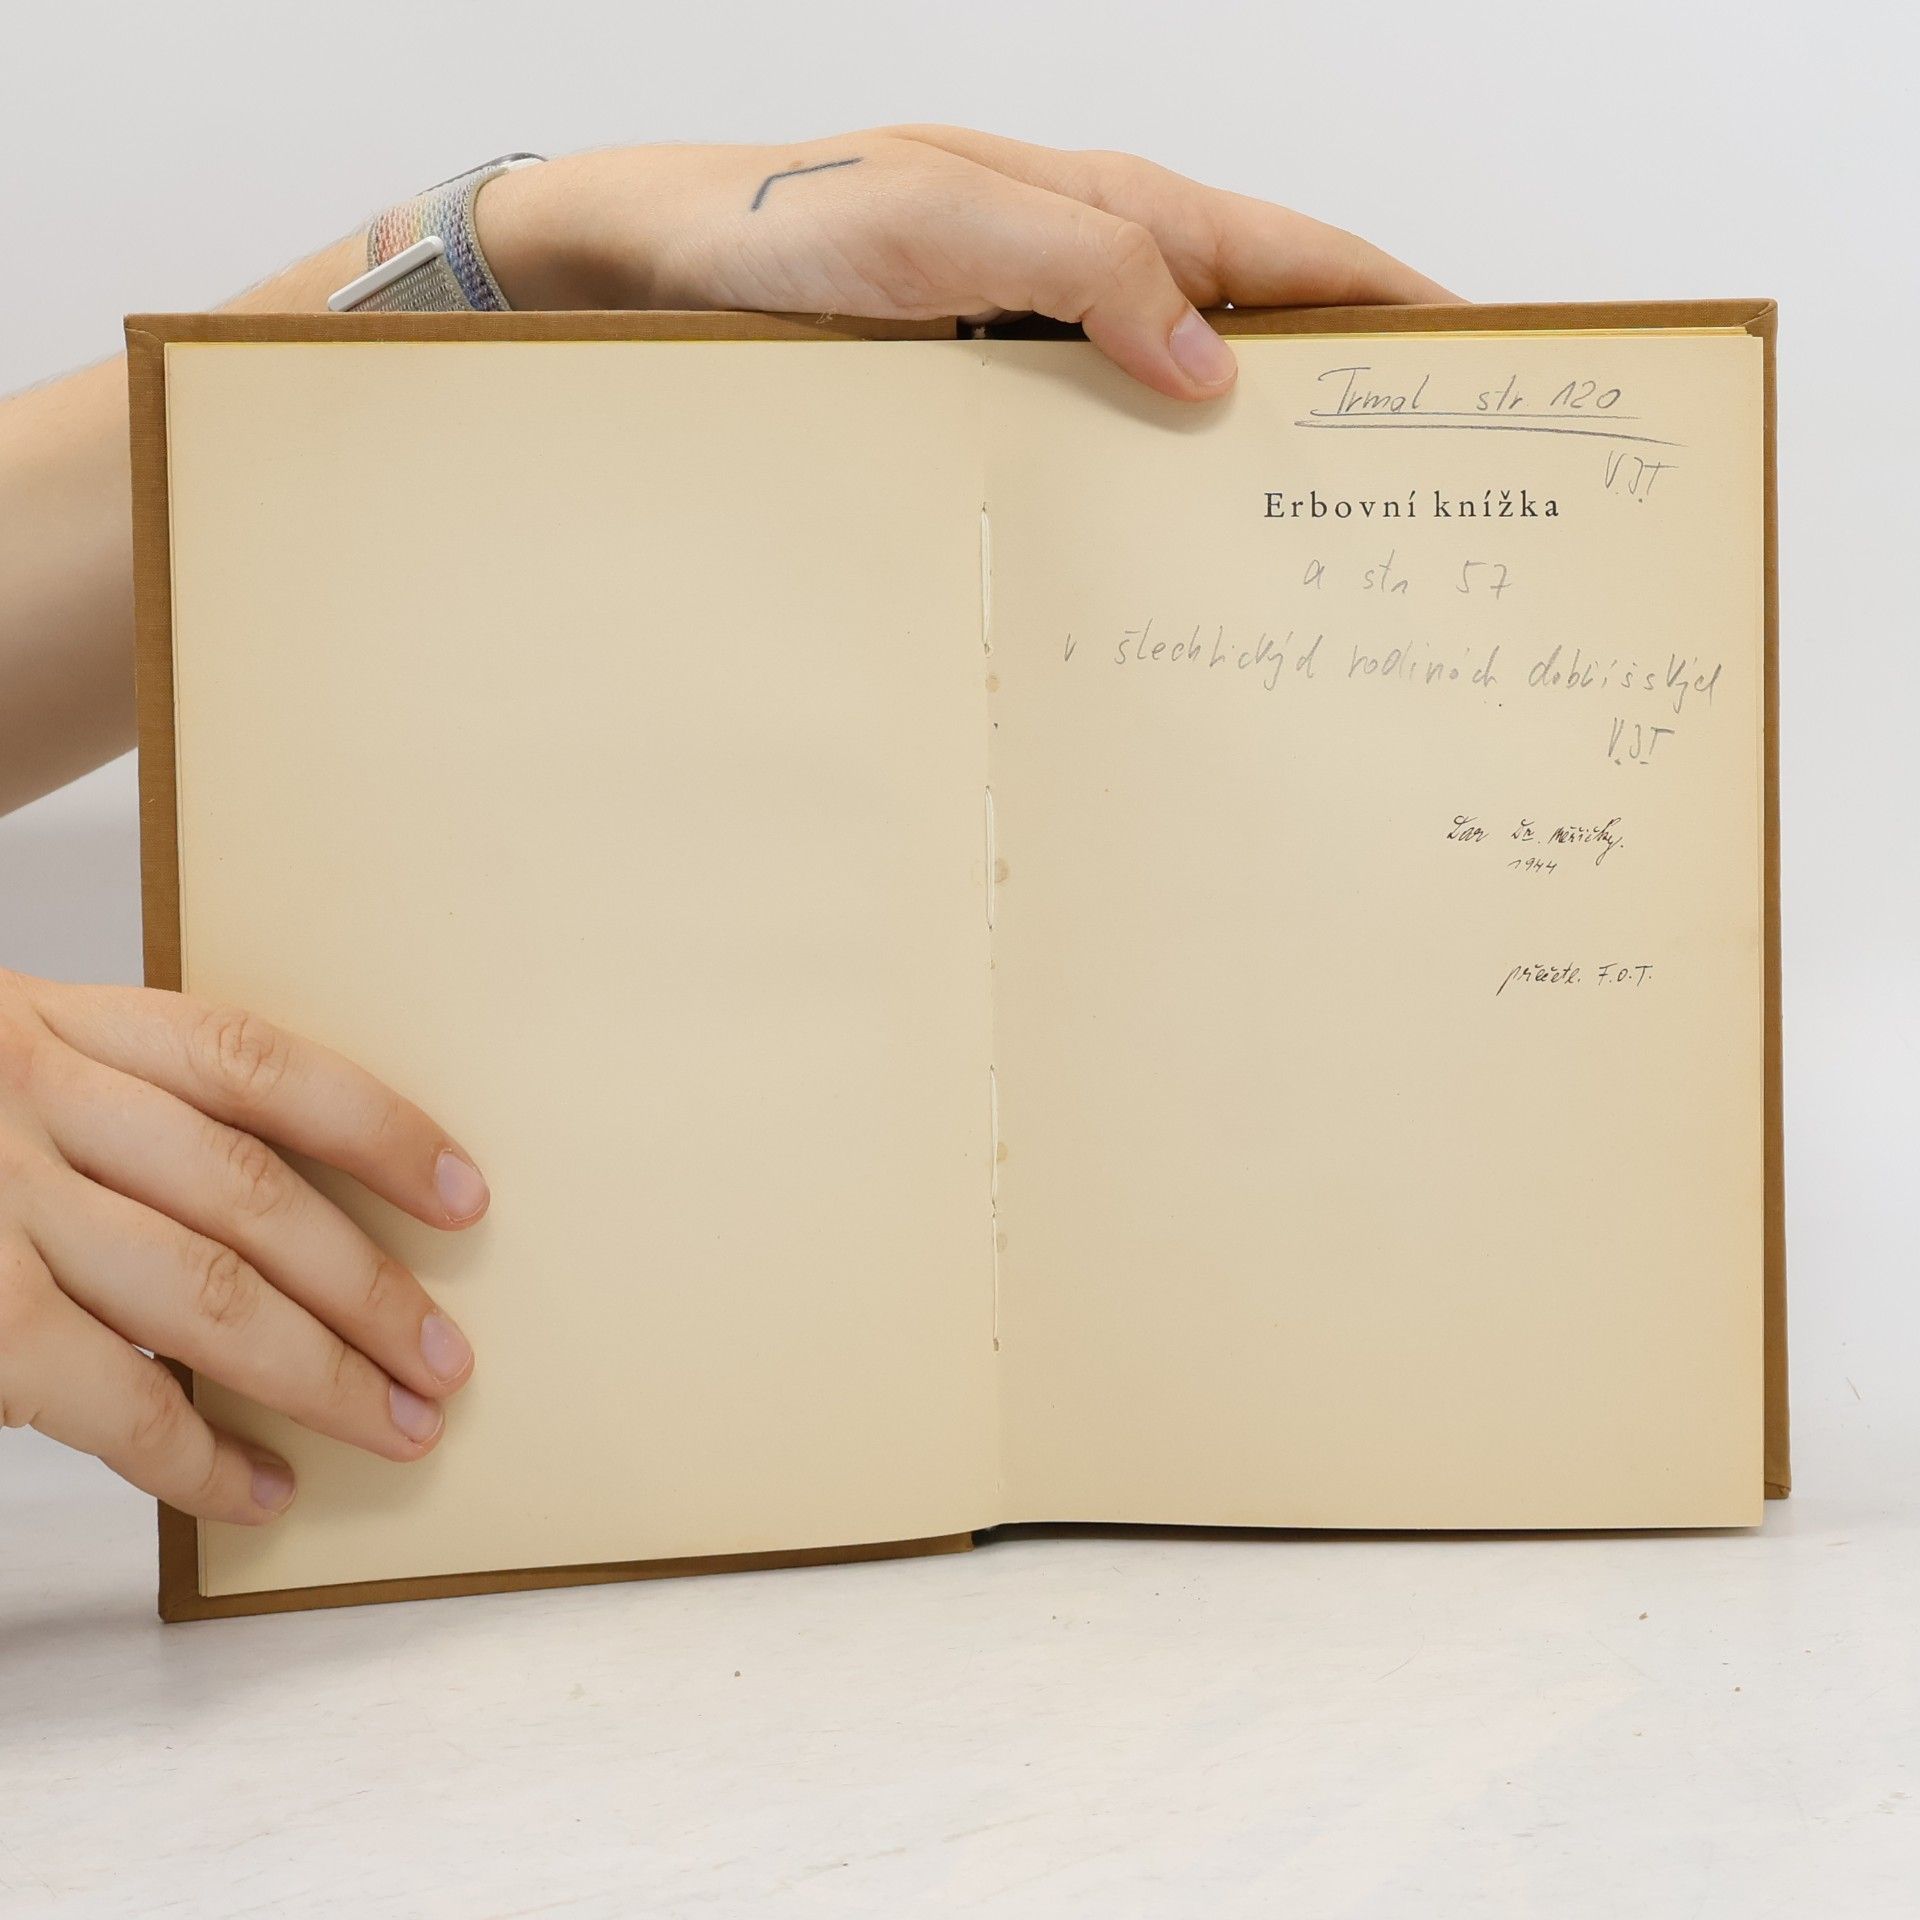 Trmal str. 120
V.J.T
Erbovní knížka
a str 57
v šlechtických rodinách dobříšských
V.J.T
Dar Dr. Měřičky.
1944
přečetl. F.O.T.